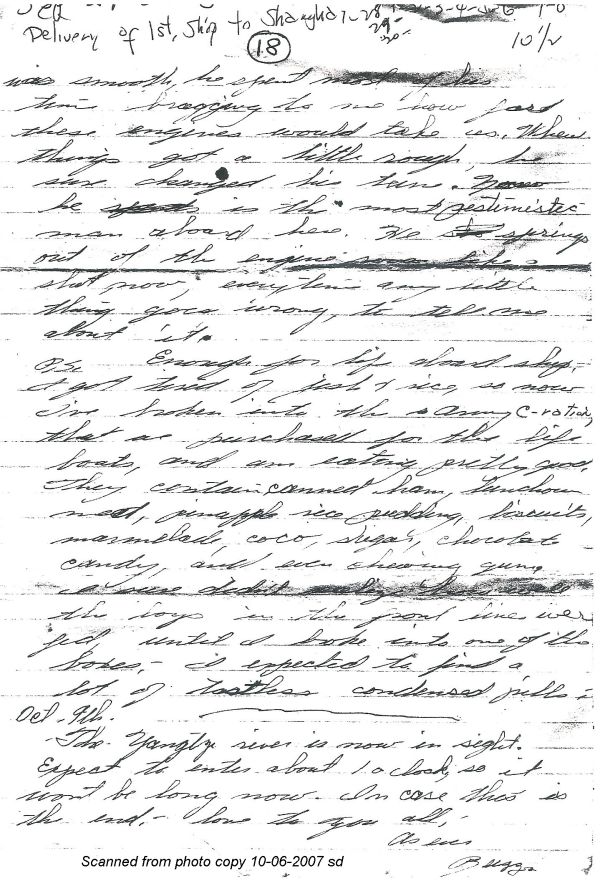 Delivery of 1st, Ship to Shanghai
18
10 1/2
was smooth, he spent most of his
time bragging to me how good
these engines would take us. When
things got a little rough, he
sure changed his tune. Now
he is the most pestimistec
man aboard here. He springs
out of the engine room like a
shot now, everytime any little
thing goes wrong, to tell me
about it.
Enough for life aboard ship,-
I got tired of fish & rice, so now
I've broken into the Army C-ration,
that we purchased for the life
boats, and am eating pretty good.
They contain canned ham, lunchon
meat, pinapple rice pudding, biscuits,
marmelade, coco, sugar, chocolate
candy, and even chewing gum,
I sure didnt realize how well
the boys in the front lines were
fed, until I broke into one of the
boxes,- I expected to find a
lot of tastless condensed pills-
Oct. 9th.
The Yangtze river is now in sight.
Expect to enter about 1 o clock, so it
wont be long now. In case this is
the end,- love to you all,-
As ever
Buzz
Scanned from photo copy 10-06-2007 sd